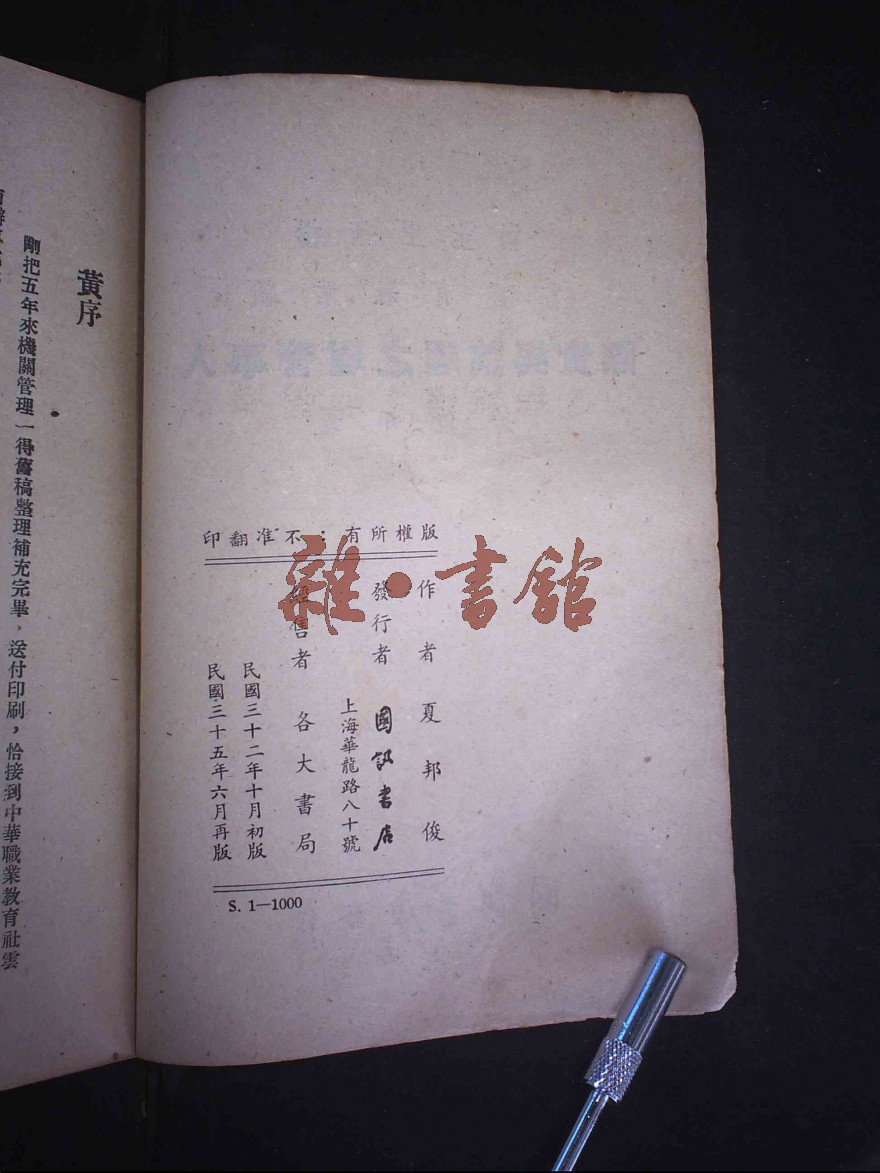 版權所有：不准翻印
作者 夏邦俊
發行者 國訊書店
上海華龍路八十號
經售者 各大書局
民國三十二年十月初版
民國三十五年六月再版
S. 1—1000
雜·書舘
黃序
剛把五年來機關管理一得舊稿整理補充完畢，送付印刷，恰接到中華職業教育社雲